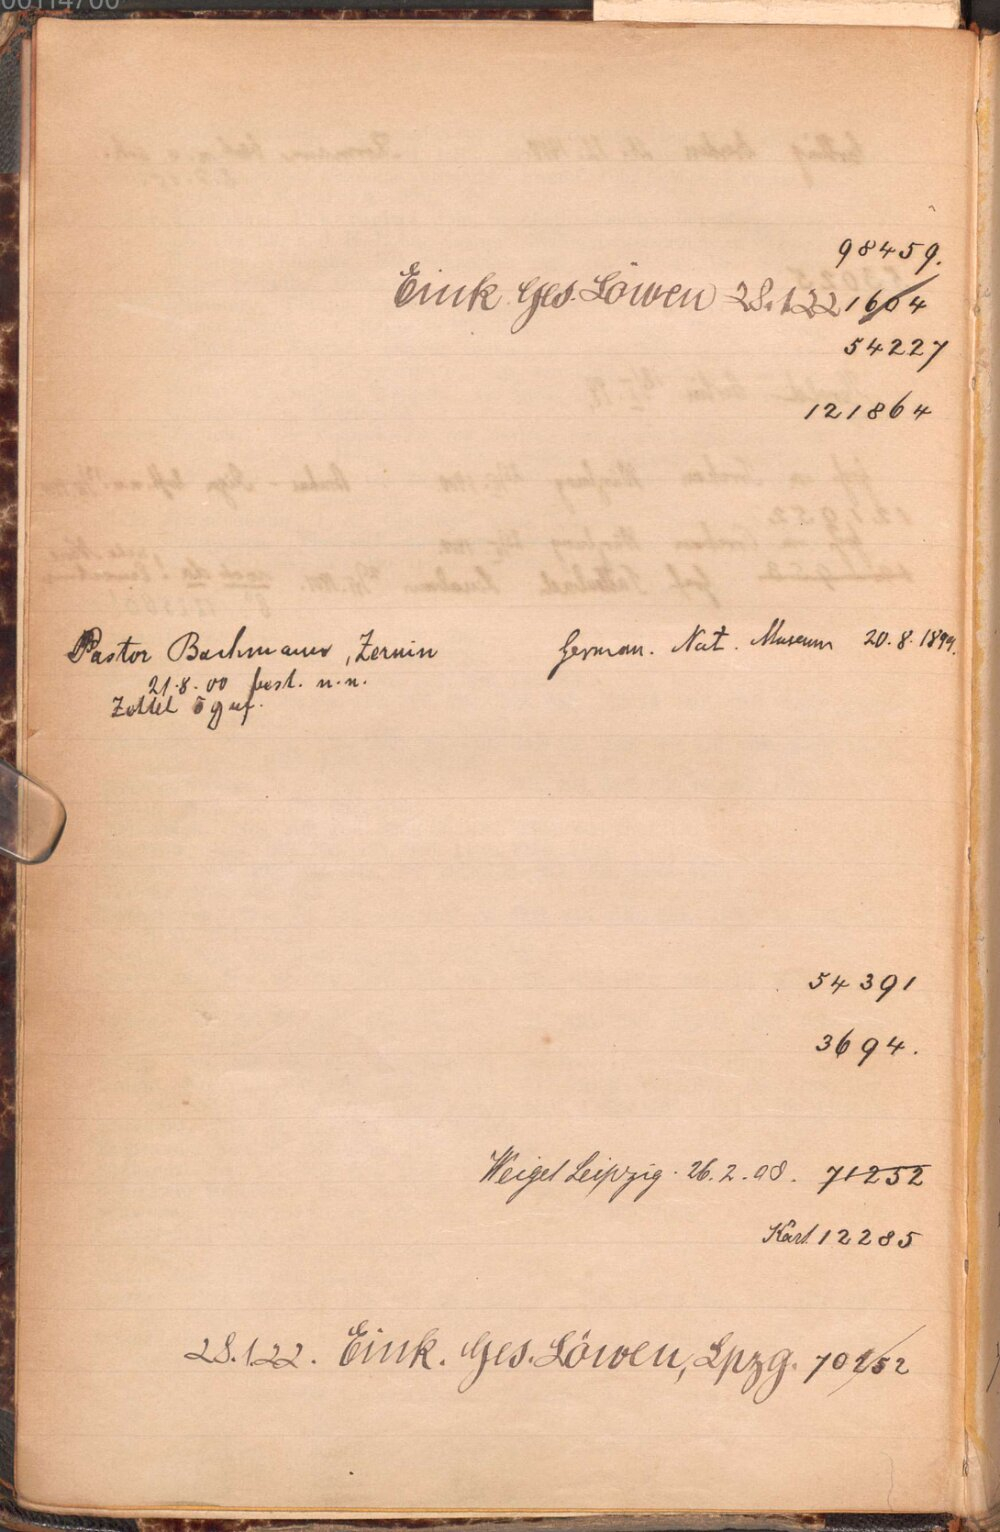 98459.
Eink. Ges. Löwen 28.1.22 1604
54227
121864
Pastor Bachmann, Zernin German. Nat. Museum 20.8.1899.
21.8.00 best. n.n.
Zettel
54391
3694.
Weigel Leipzig. 26.2.08. 71252
Kart. 12285
28.1.22. Eink. Ges. Löwen, Lpzg. 70252